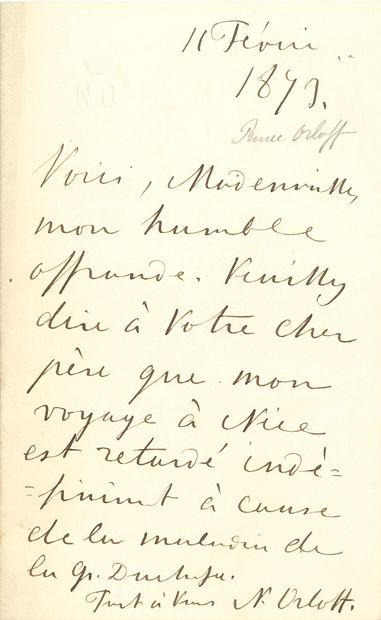 N.O
11 Février
1873.
Prince Orloff
Voici, Mademoiselle,
mon humble
offrande. Veuillez
dire à Votre cher
père que mon
voyage à Nice
est retardé indé=
=finiment à cause
de la maladie de
la Gr. Duchesse.
Tout à Vous N. Orloff.